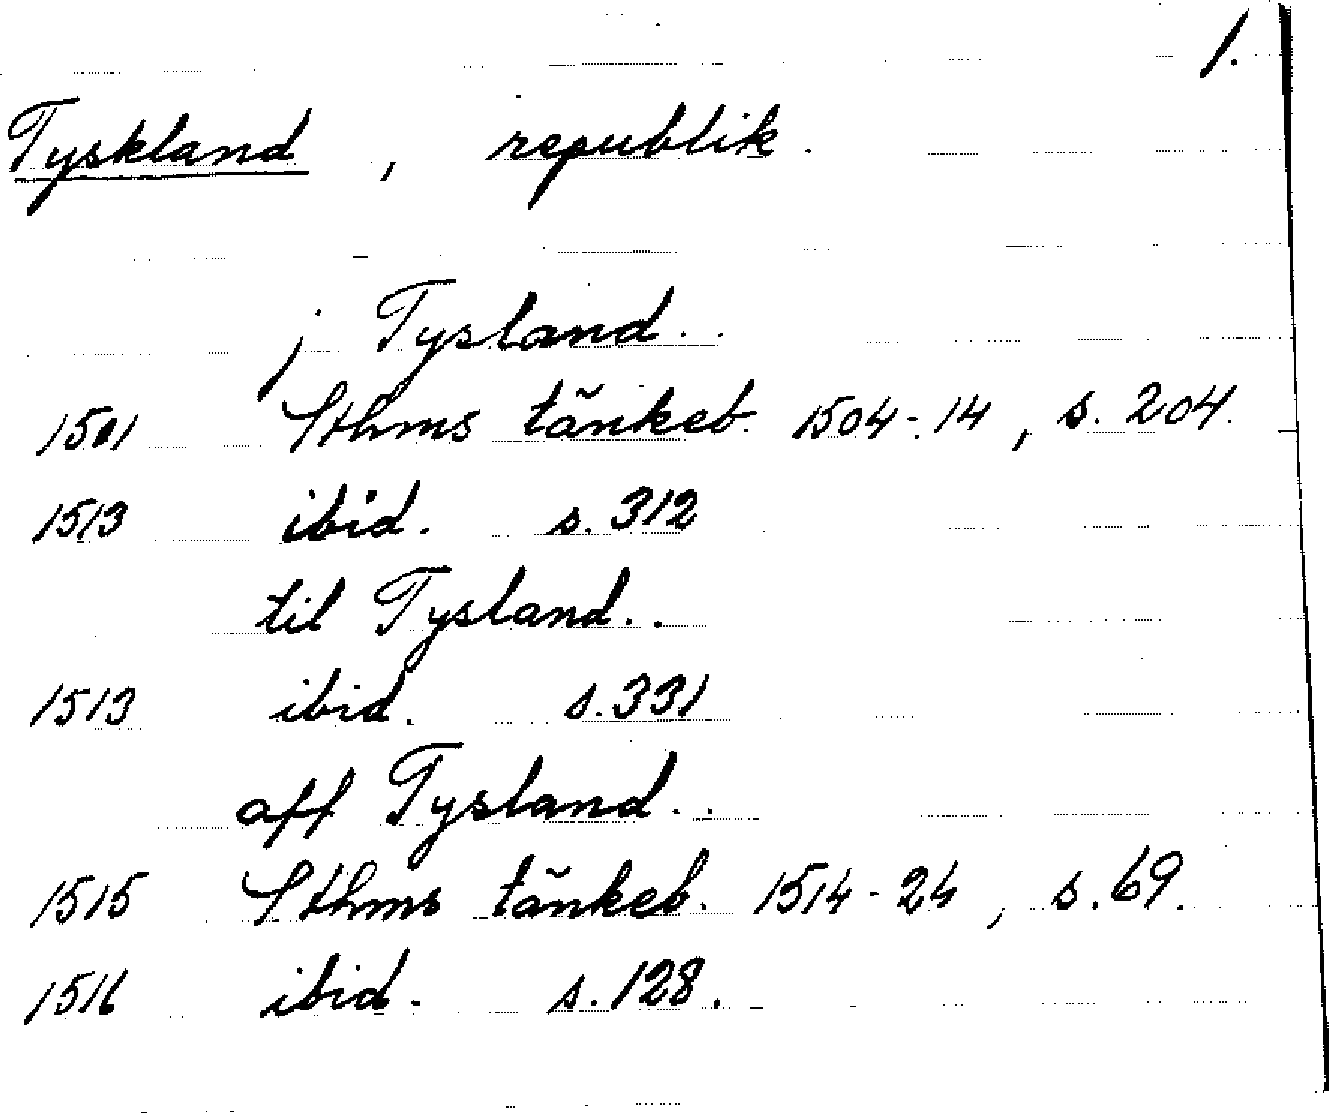 1.
Tyskland, republik.
j Tysland..
Sthms tänkeb. 1504-14, s. 204.
1513 ibid. s. 312
til Tysland..
1513 ibid. s. 331
aff Tysland..
1515 Sthms tänkeb. 1514-24, s. 69.
1516 ibid. s. 128.